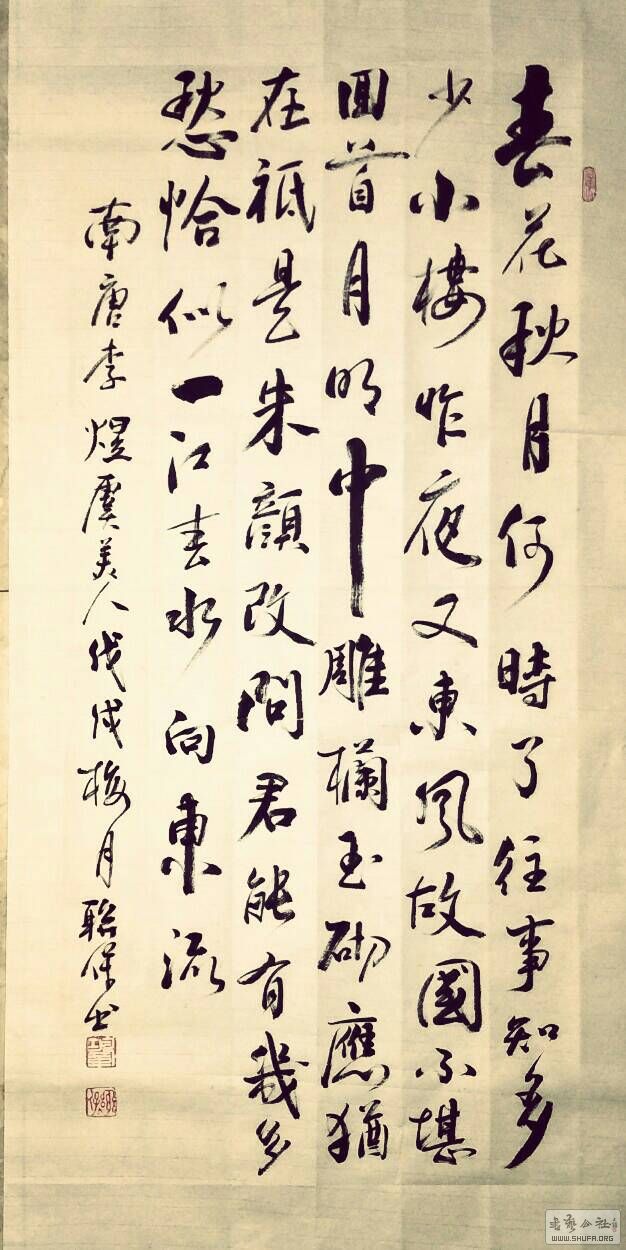 春花秋月何時了往事知多
少小樓昨夜又東風故國不堪
回首月明中雕欄玉砌應猶
在祇是朱顏改問君能有幾多
愁恰似一江春水向東流
南唐李煜虞美人戊戌梅月聯保书
书艺公社
WWW.SHUFA.ORG